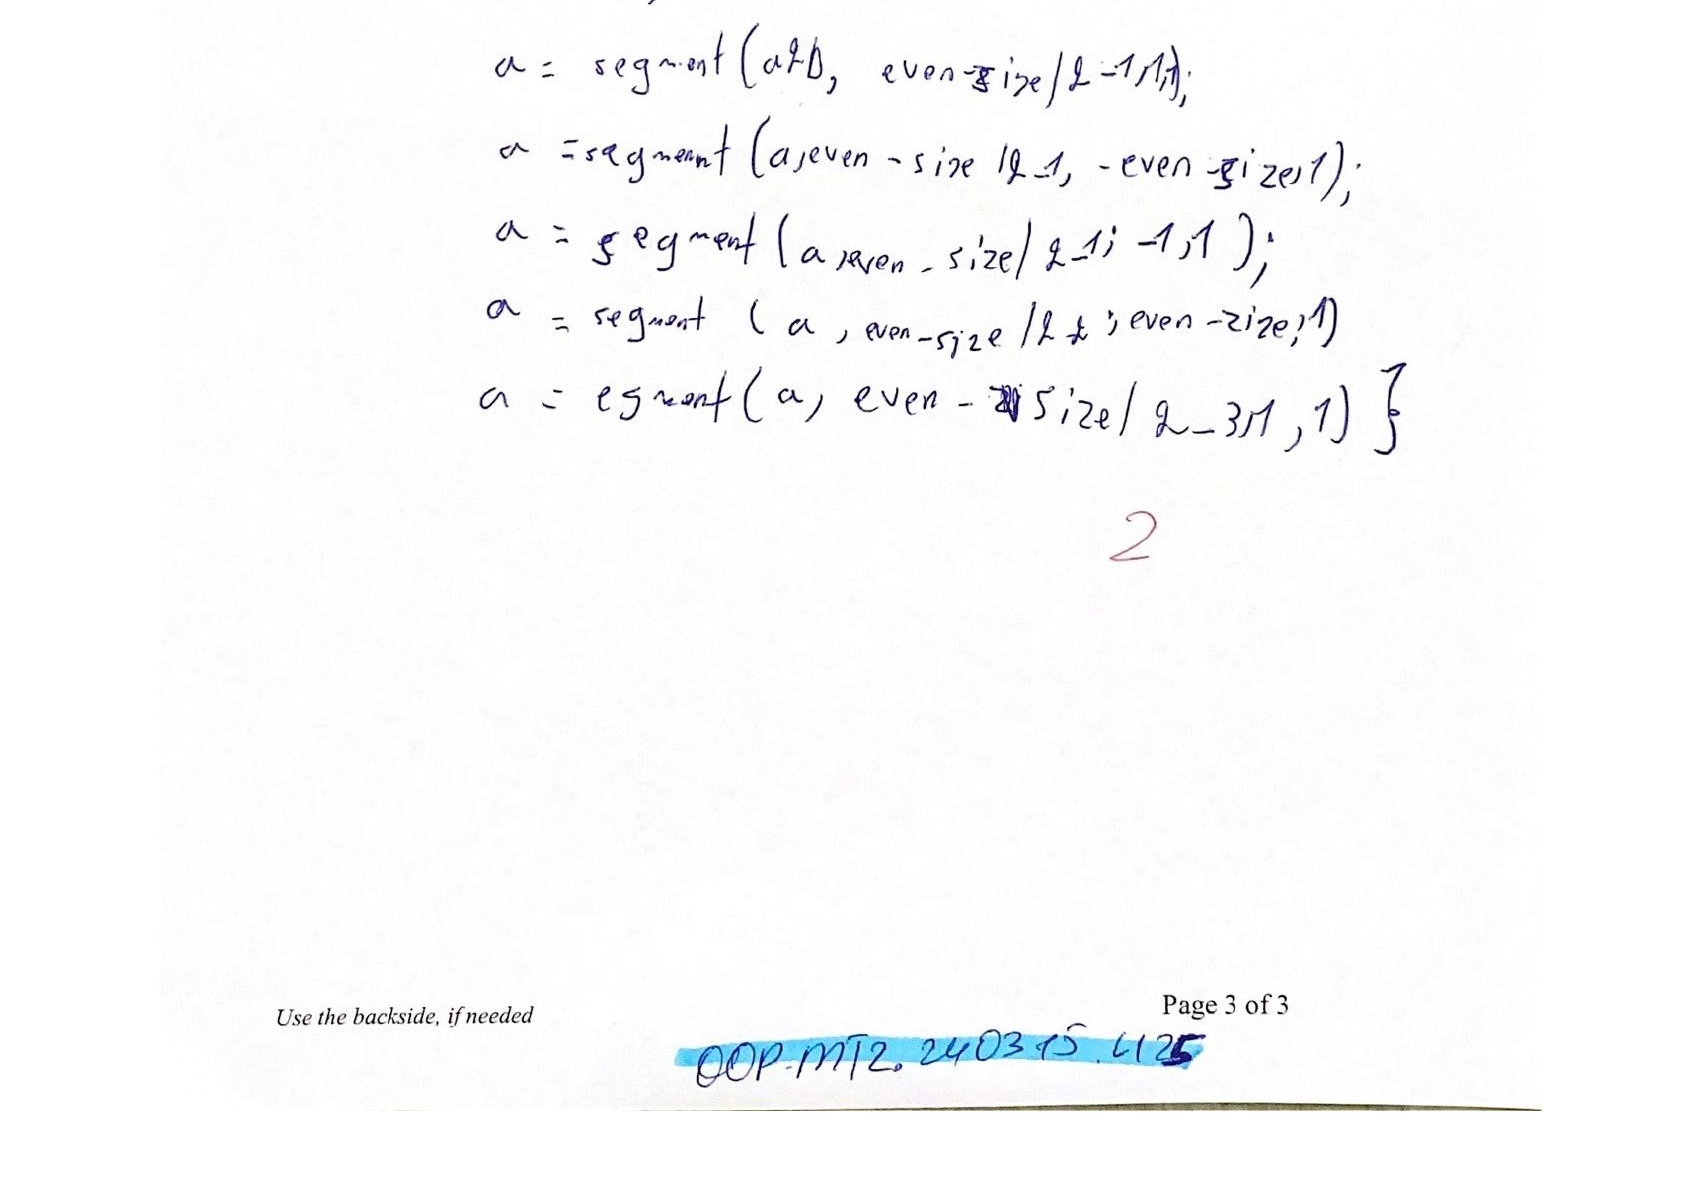 a = segment (a2D, even-size/2-1,1,1);
a =segment (a,even - size /2-1, -even -size,1);
a = segment (a ,even - size/ 2-1; -1,1 );
a = segment ( a , even-size /2 2 ; even -zize,1)
a = egment (a, even - size/ 2-3,1 ,1) }
2
Use the backside, if needed
Page 3 of 3
OOP-MT2. 240315.4125